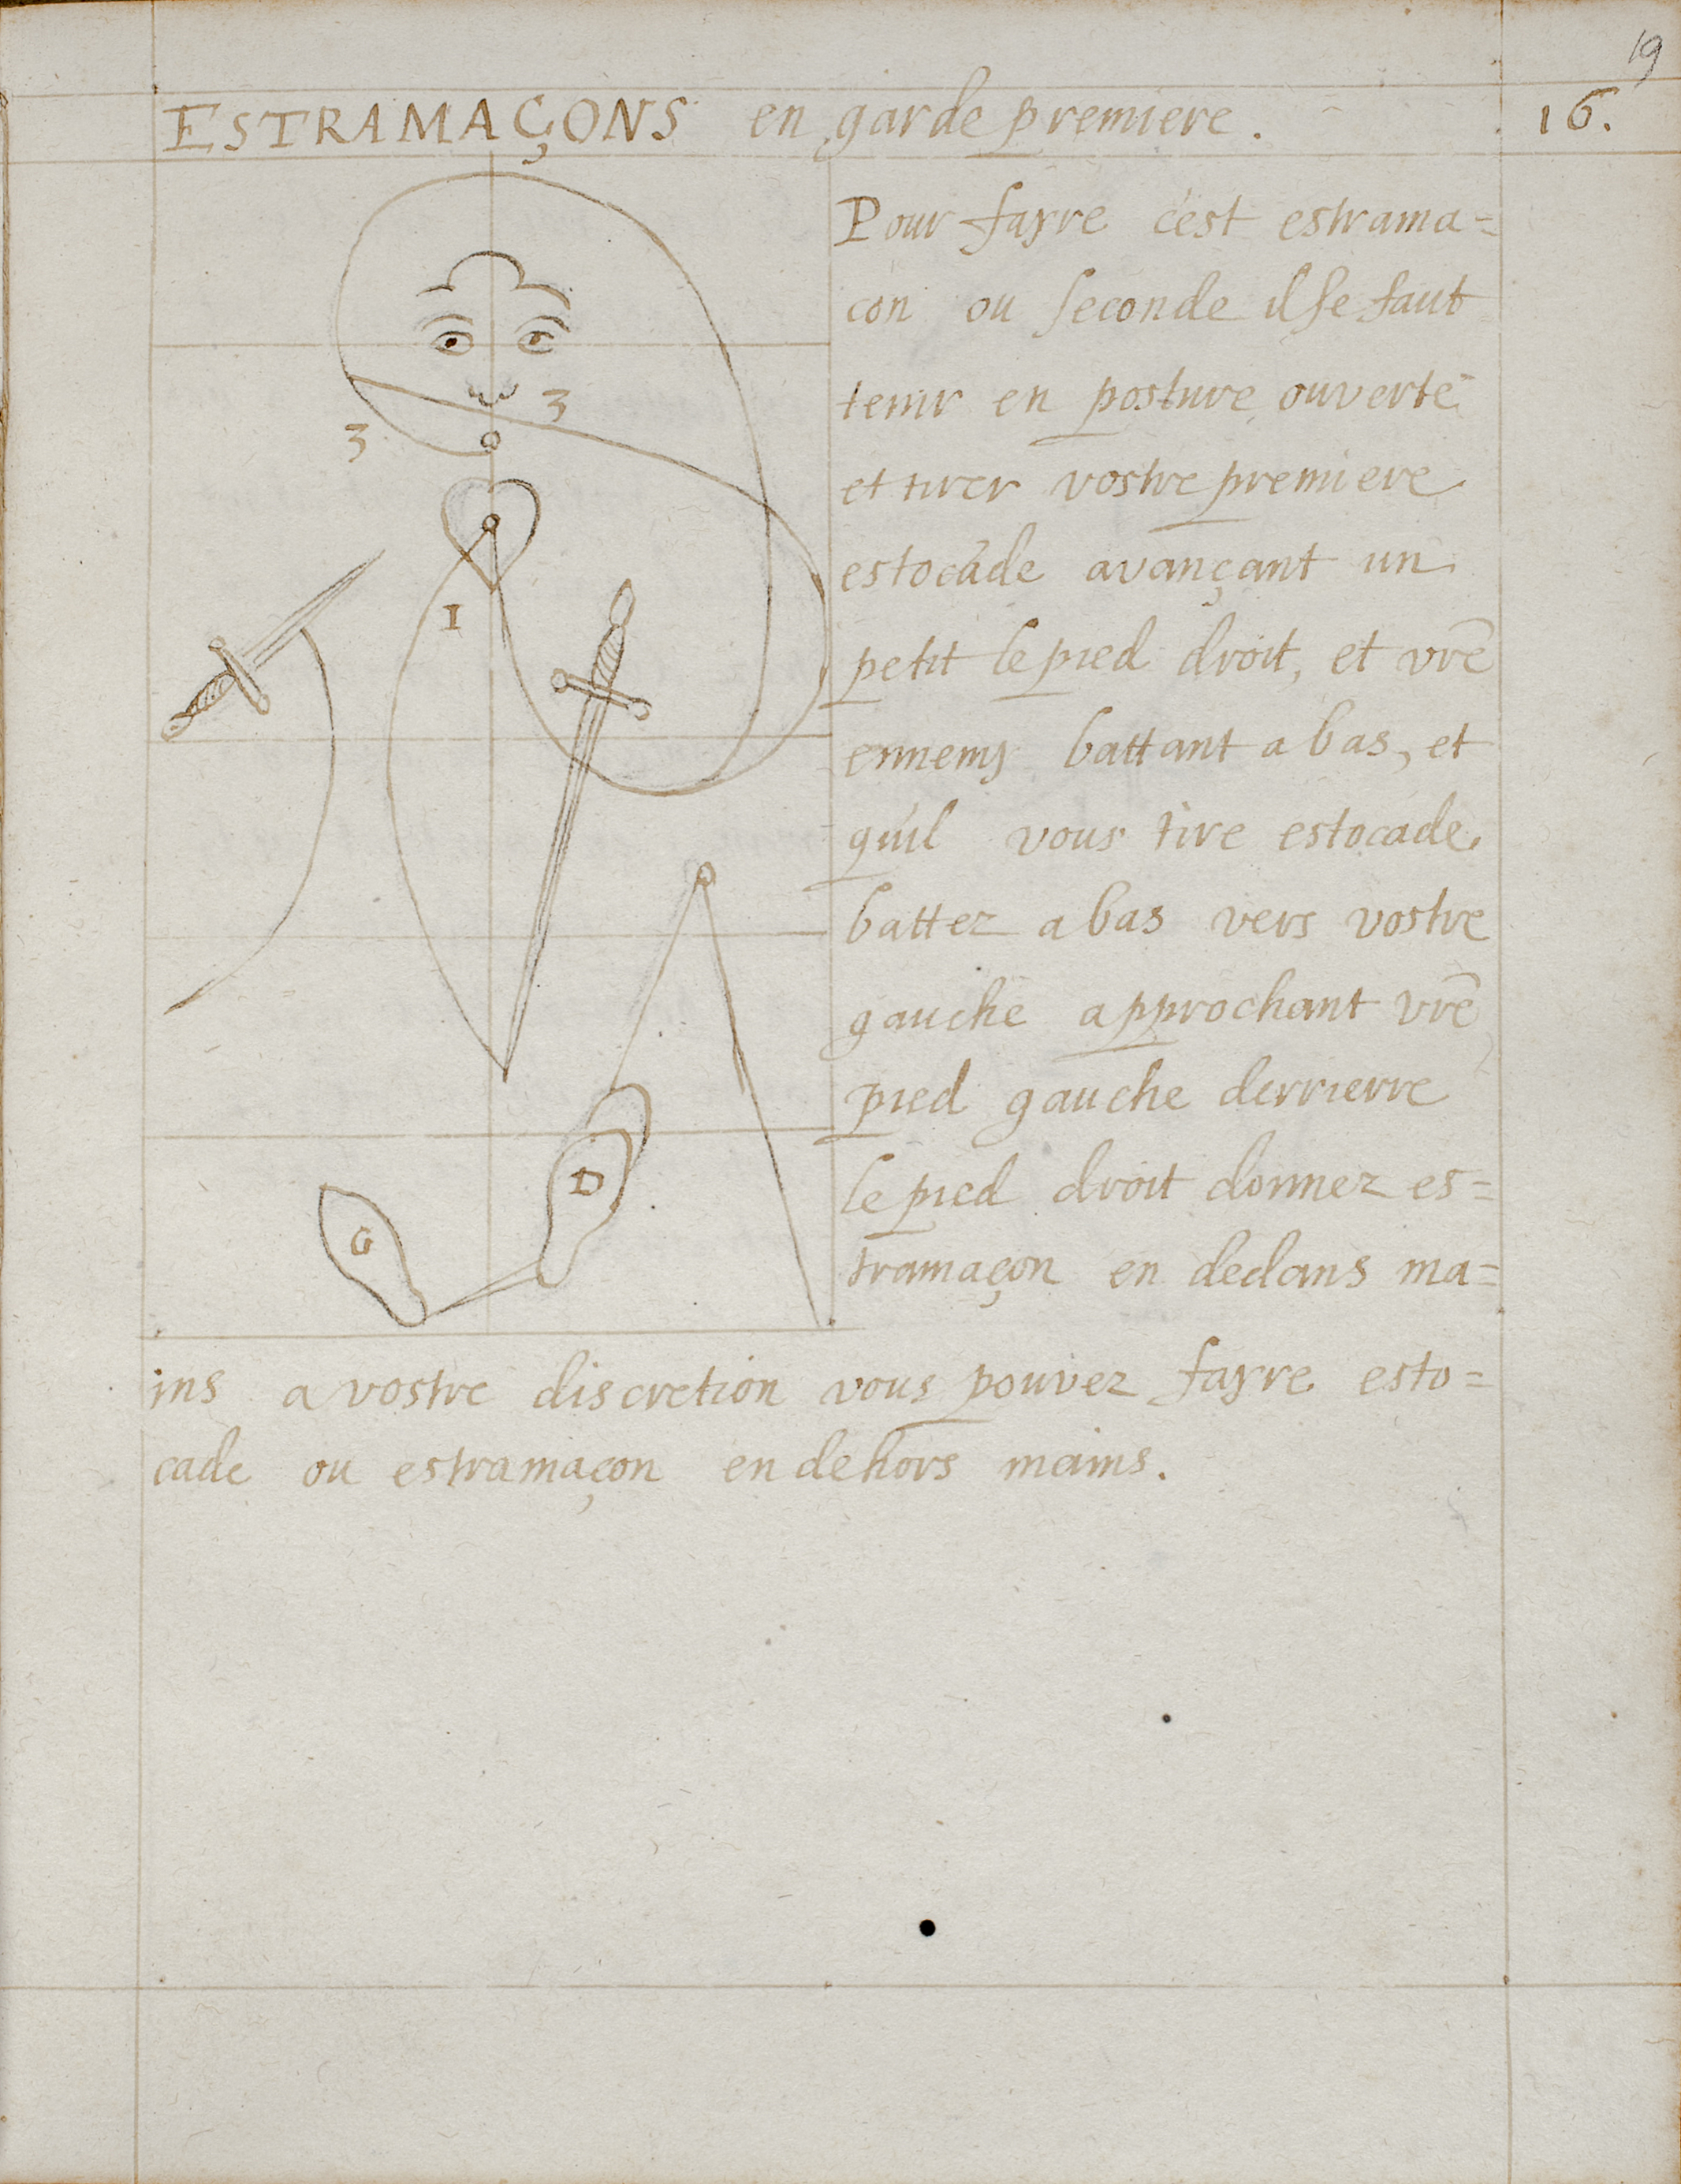 19
ESTRAMAÇONS en garde premiere. 16.
Pour fayre c'est estrama=
con ou seconde il se faut
tenir en posture ouverte
et tirer vostre premiere
estocade avançant un
petit le pied droit, et vrē
ennemy battant a bas, et
quil vous tire estocade
battez a bas vers vostre
gauche approchant vrē
pied gauche derrierre
le pied droit donnez es=
tramaçon en dedans ma=
ins a vostre discretion vous pouvez fayre esto=
cade ou estramaçon en dehors mains.
3
3
I
D
G